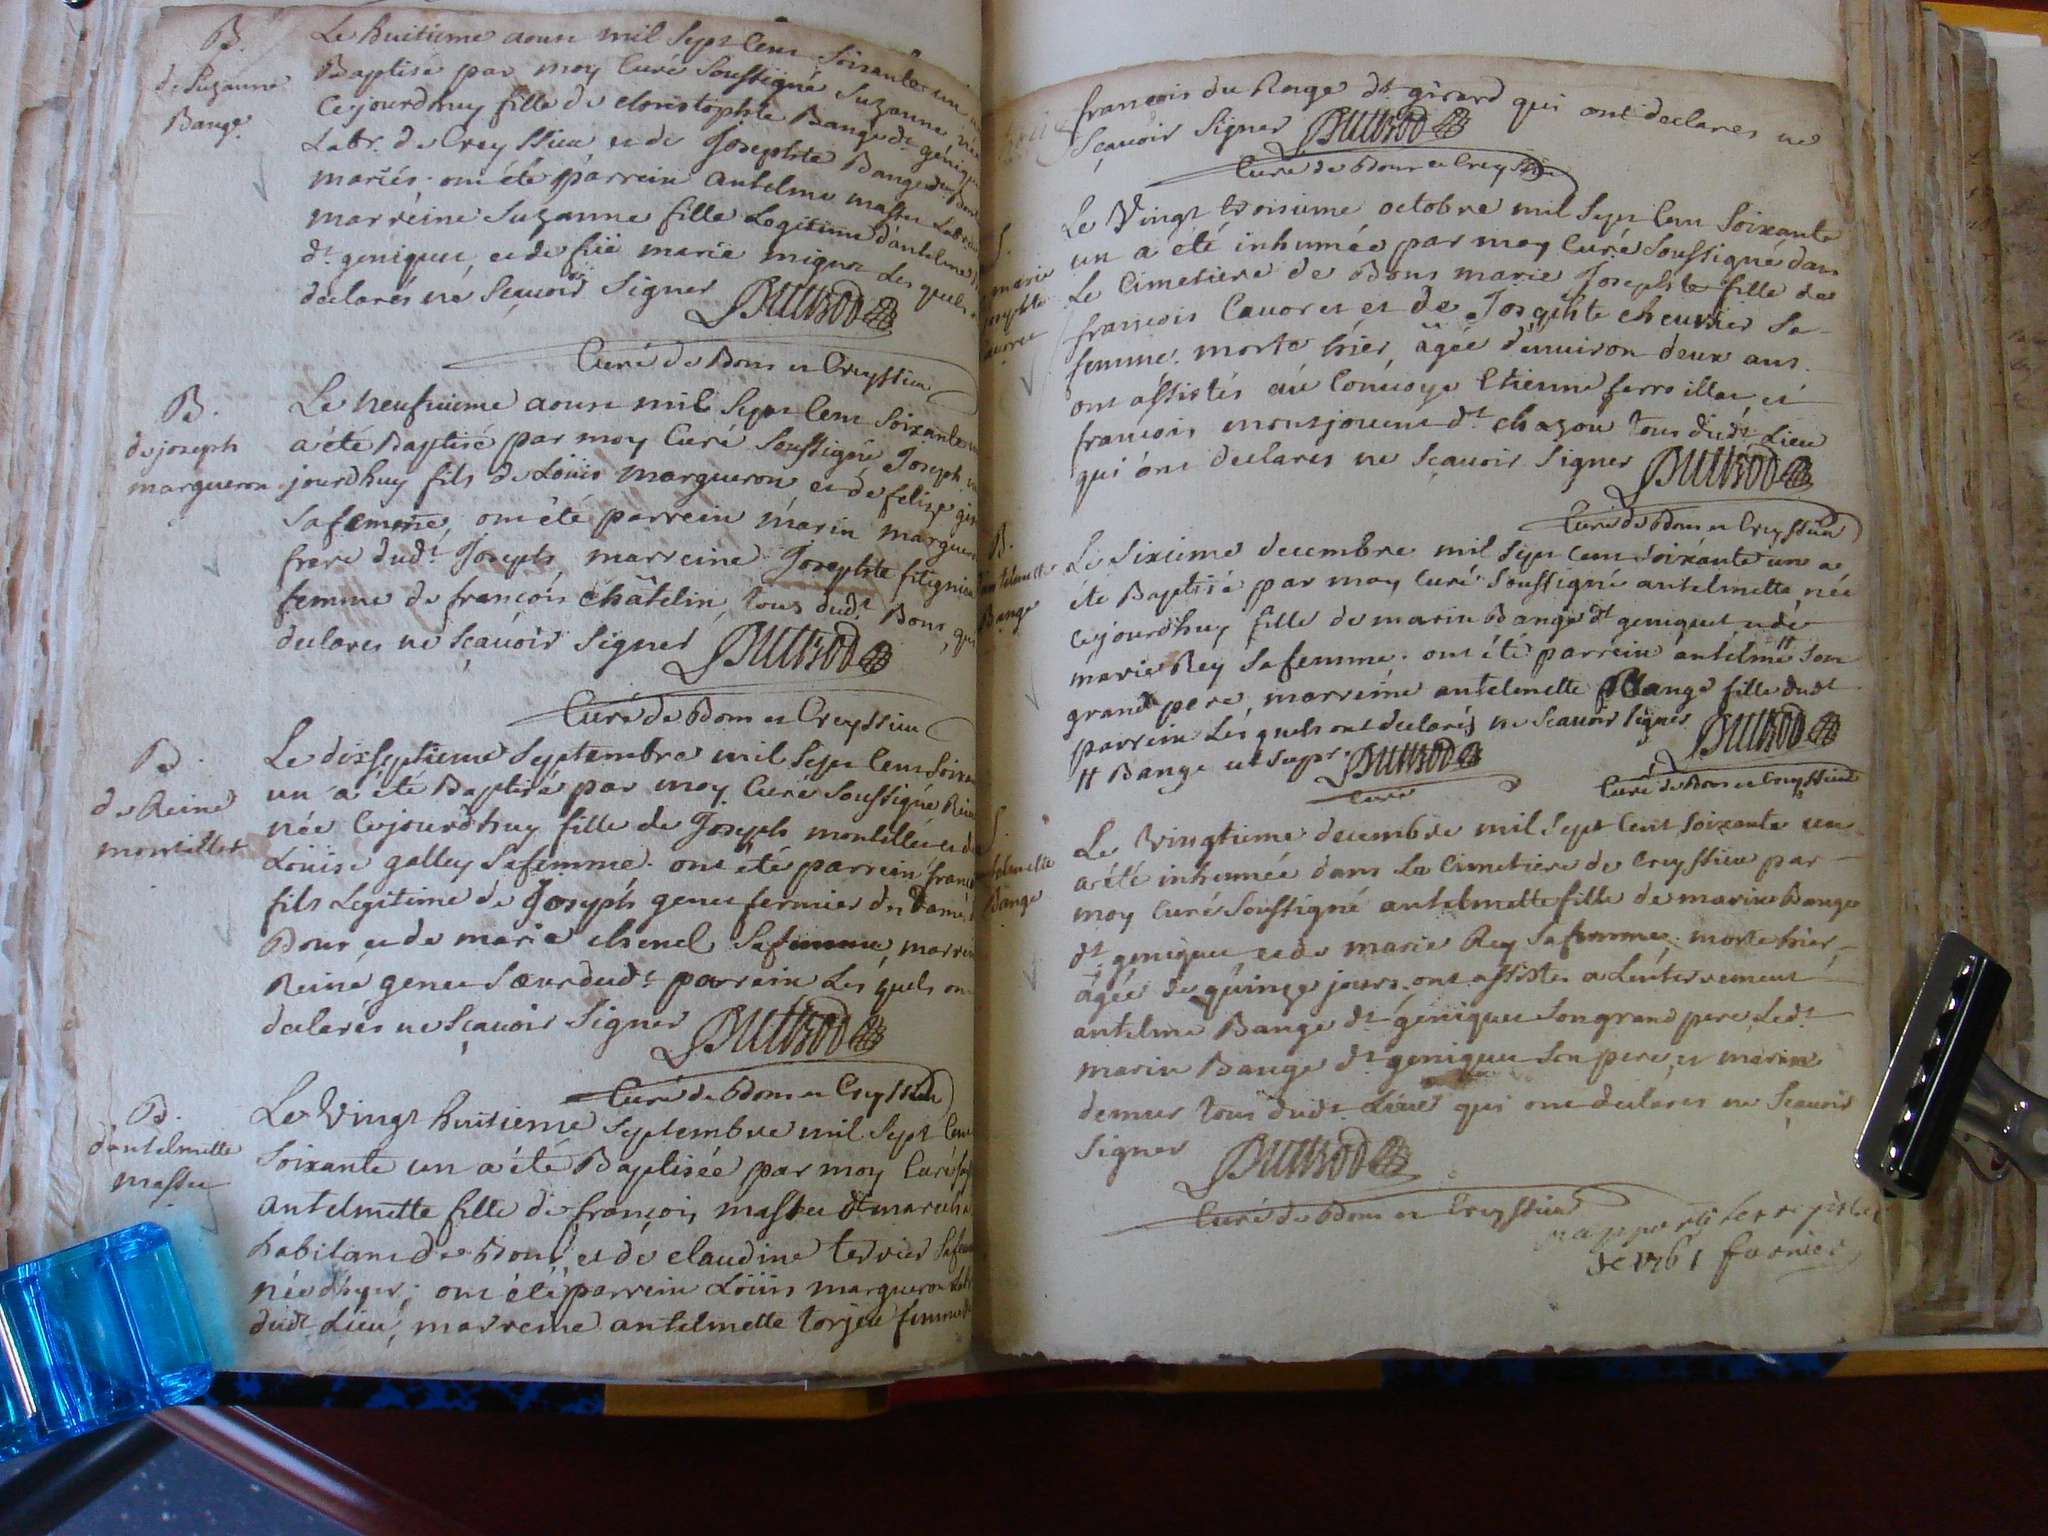 B.
de Suzanne
Bange
Le huitieme aoust mil sept cent soixante un
Baptisé par moy Curé soussigné Suzanne née
Cejourdhuy fille de christophle Bange dt génique
Labr. de Creyssieu et de Josephte Bange
mariés. ont été parrein antelme massu Lab
marreine Suzanne fille Legitime d'antelme
dt geniquet, et de füe marie mignot Les quels
declarés ne sçavoir signer
Curé de Bons et Creyssieu
B.
de joseph
margueron
Le neufvieme aoust mil sept cent soixante
a été Baptisé par moy Curé soussigné Joseph
jourdhuy fils de Loüis margueron et de felize
sa femme, ont été parrein marin margueron
frere dudt Joseph, marreine Josephte fitignieu
femme de françois châtelin, tous dudt Bons, qui
declarés ne sçavoir signer
Curé de Bons et Creyssieu
B.
de Reine
montillet
Le dixseptieme septembre mil sept cent soixante
un a été Baptisé par moy Curé soussigné Reine
née Cejourdhuy fille de Joseph montillet et de
Loüise galley sa femme. ont été parrein françois
fils Legitime de Joseph genet fermier des dames
Bons, et de marie chenel sa femme, marreine
Reine genet sœur dudt parrein Les quels ont
declarés ne sçavoir signer
Curé de Bons et Creyssieu
B.
d'antelmette
massu
Le Vingt huitieme septembre mil sept cent
soixante un a été Baptisée par moy Curé
antelmette fille de françois massu dt
habitant de Bons, et de claudine tervier sa femme
née d'hyer; ont été parrein Loüis margueron Labr
dudt Lieu, marreine antelmette torjeu femme de
françois du Rouge dt girard qui ont declarés ne
sçavoir signer
Curé de Bons et Creyssieu
S.
marie
josephte
Cavoret
Le Vingt troisieme octobre mil sept cent soixante
un a été inhumée par moy Curé soussigné dans
Le Cimetiere de Bons marie Josephte fille de
françois Cavoret et de Josephte cheuvrier sa
femme. morte hier, âgée d'environ deux ans.
ont assistés aü Convoye Etienne ferroillat et
françois montjouvent dt chazou tous dudt Lieu
qui ont declarés ne sçavoir signer
Curé de Bons et Creyssieu
B.
d'antelmette
Bange
Le sixieme decembre mil sept cent soixante un a
été Baptisé par moy Curé soussigné antelmette née
Cejourdhuy fille de marin Bange dt geniquet et de
marie Rey sa femme. ont été parrein antelme # son
grand pere, marreine antelmette Bange fille dudt
parrein Les quels ont declarés ne sçavoir signer
# Bange ut supr.
Curé
Curé de Bons et Creyssieu
S.
antelmette
Bange
Le Vingtieme decembre mil sept cent soixante un
a été inhumée dans Le Cimetiere de Creyssieu par
moy Curé soussigné antelmette fille de marin Bange
dt geniquet et de marie Rey sa femme. morte hier,
âgée de quinze jours. ont assistés a L'enterrement
antelme Bange dt géniquet son grand pere, Ledt
marin Bange dt géniquet son pere, et marin
demur tous dudt Lieu qui ont declarés ne sçavoir
signer
Curé de Bons et Creyssieu